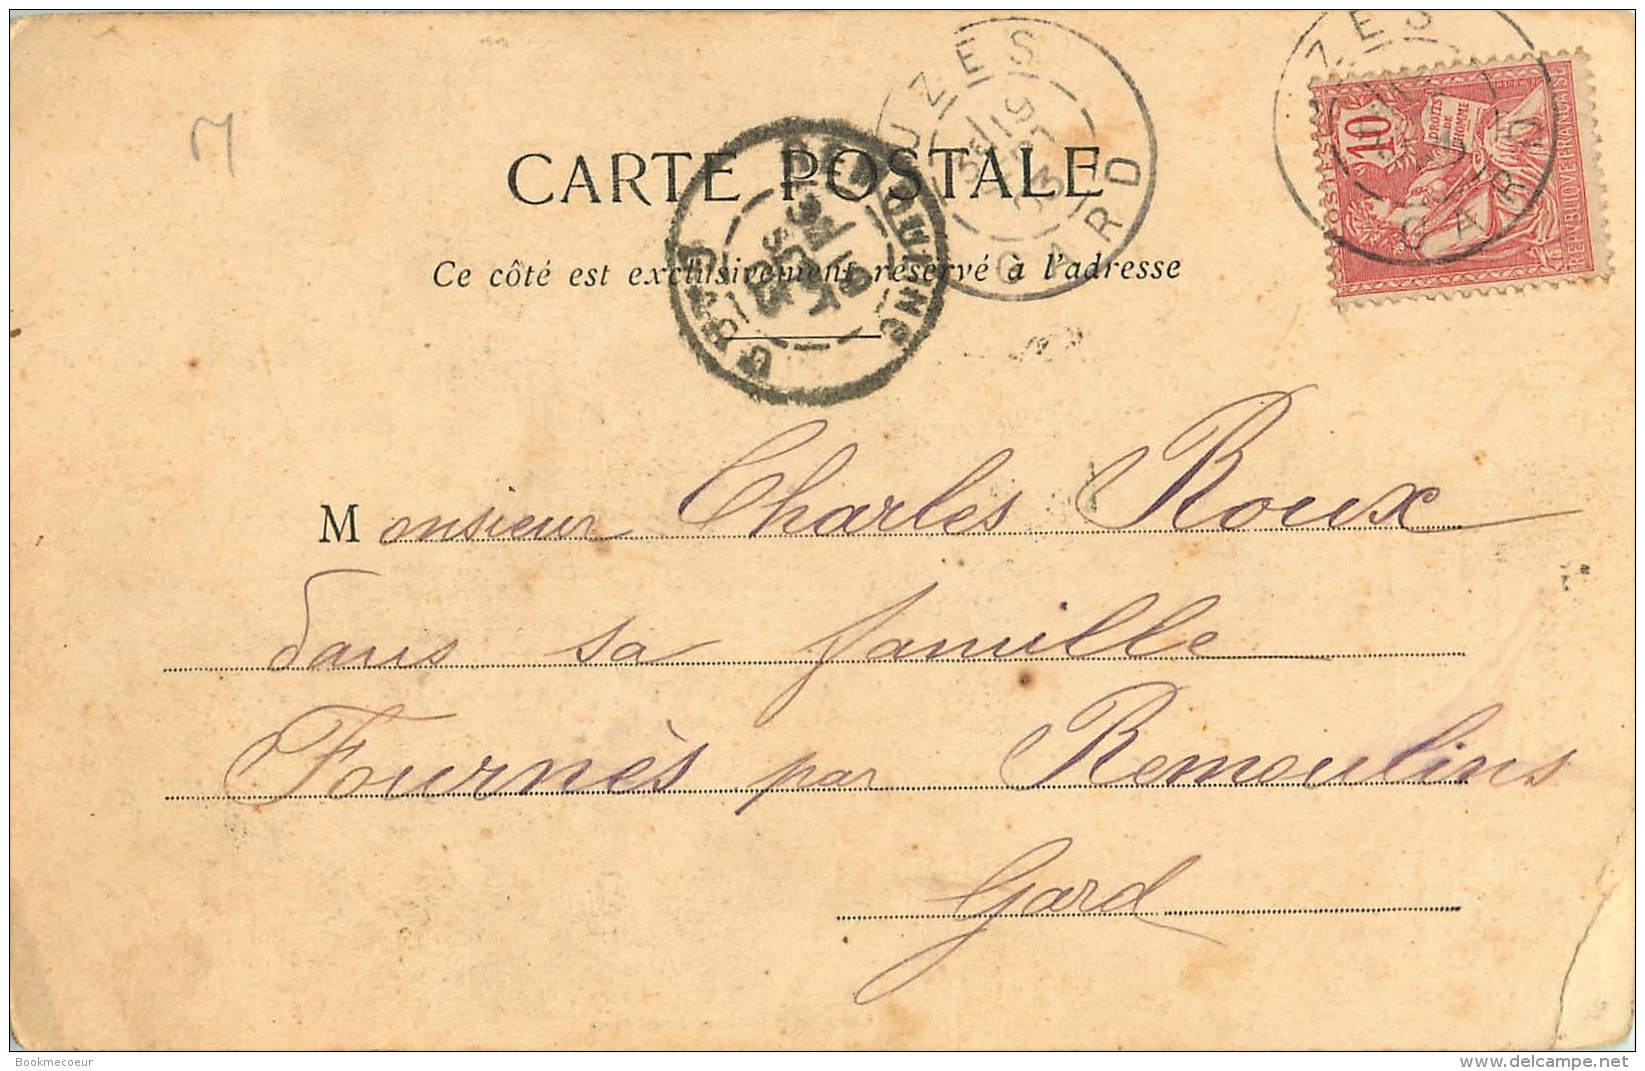 UZES
GARD
UZES
GARD
POSTES
10
DROITS
DE
L'HOMME
REPUBLIQUE FRANCAISE
CARTE POSTALE
Ce côté est exclusivement réservé à l'adresse
REMOULINS
GARD
Monsieur Charles Roux
dans sa famille
Fournès par Remoulins
Gard
Bookmecoeur
www.delcampe.net